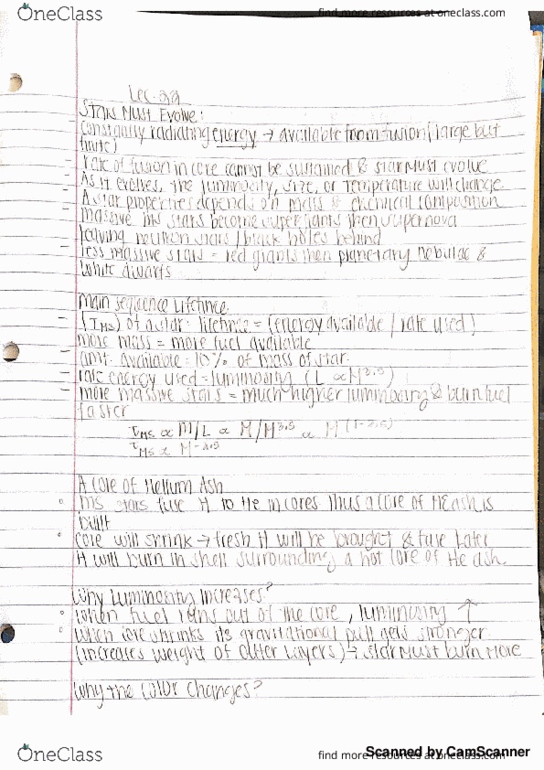 OneClass
find more resources at oneclass.com
Lec. 22
Stars Must Evolve:
Constantly radiating energy → available from fusion (large but
finite)
- rate of fusion in core cannot be sustained & star must evolve
- As it evolves, the luminosity, size, or temperature will change
- A star properties depends on mass & chemical composition
- massive ms stars become supergiants then supernova
leaving neutron stars / black holes behind
- less massive stars = red giants then planetary nebulae &
white dwarfs
Main Sequence Lifetime
- (τMS) of a star: lifetime = (energy available / rate used)
- more mass = more fuel available
- amt. available = 10% of mass of star
- rate energy used = luminosity (L ∝ M^3.5)
- more massive stars = much higher luminosity & burn fuel
faster
τMS ∝ M/L ∝ M/M^3.5 ∝ M^(1-3.5)
τMS ∝ M^-2.5
A Core of Helium Ash
° ms stars fuse H to He in cores thus a core of He ash is
built
° core will shrink → fresh H will be brought & fuse later
H will burn in shell surrounding a hot core of He ash.
Why luminosity increases?
° When fuel runs out of the core, luminosity ↑
° When core shrinks its gravitational pull gets stronger
(increases weight of outer layers) ↳ star must burn more
Why the color changes?
Scanned by CamScanner
OneClass
find more resources at oneclass.com